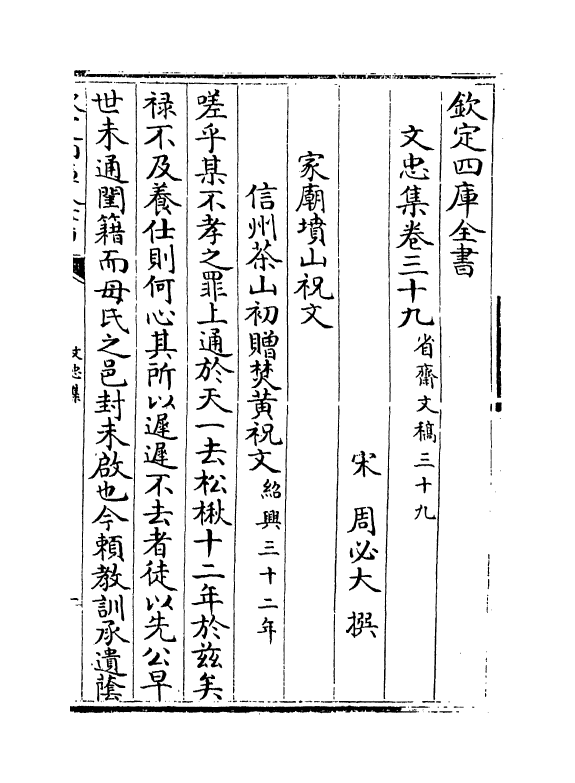 欽定四庫全書
文忠集卷三十九 省齋文稿三十九
宋 周必大 撰
家廟墳山祝文
信州茶山初贈焚黄祝文 紹興三十二年
嗟乎某不孝之罪上通於天一去松楸十二年於兹矣
禄不及養仕則何心其所以遲遲不去者徒以先公早
世未通閨籍而母氏之邑封未啟也今賴教訓承遺蔭
文忠集
一